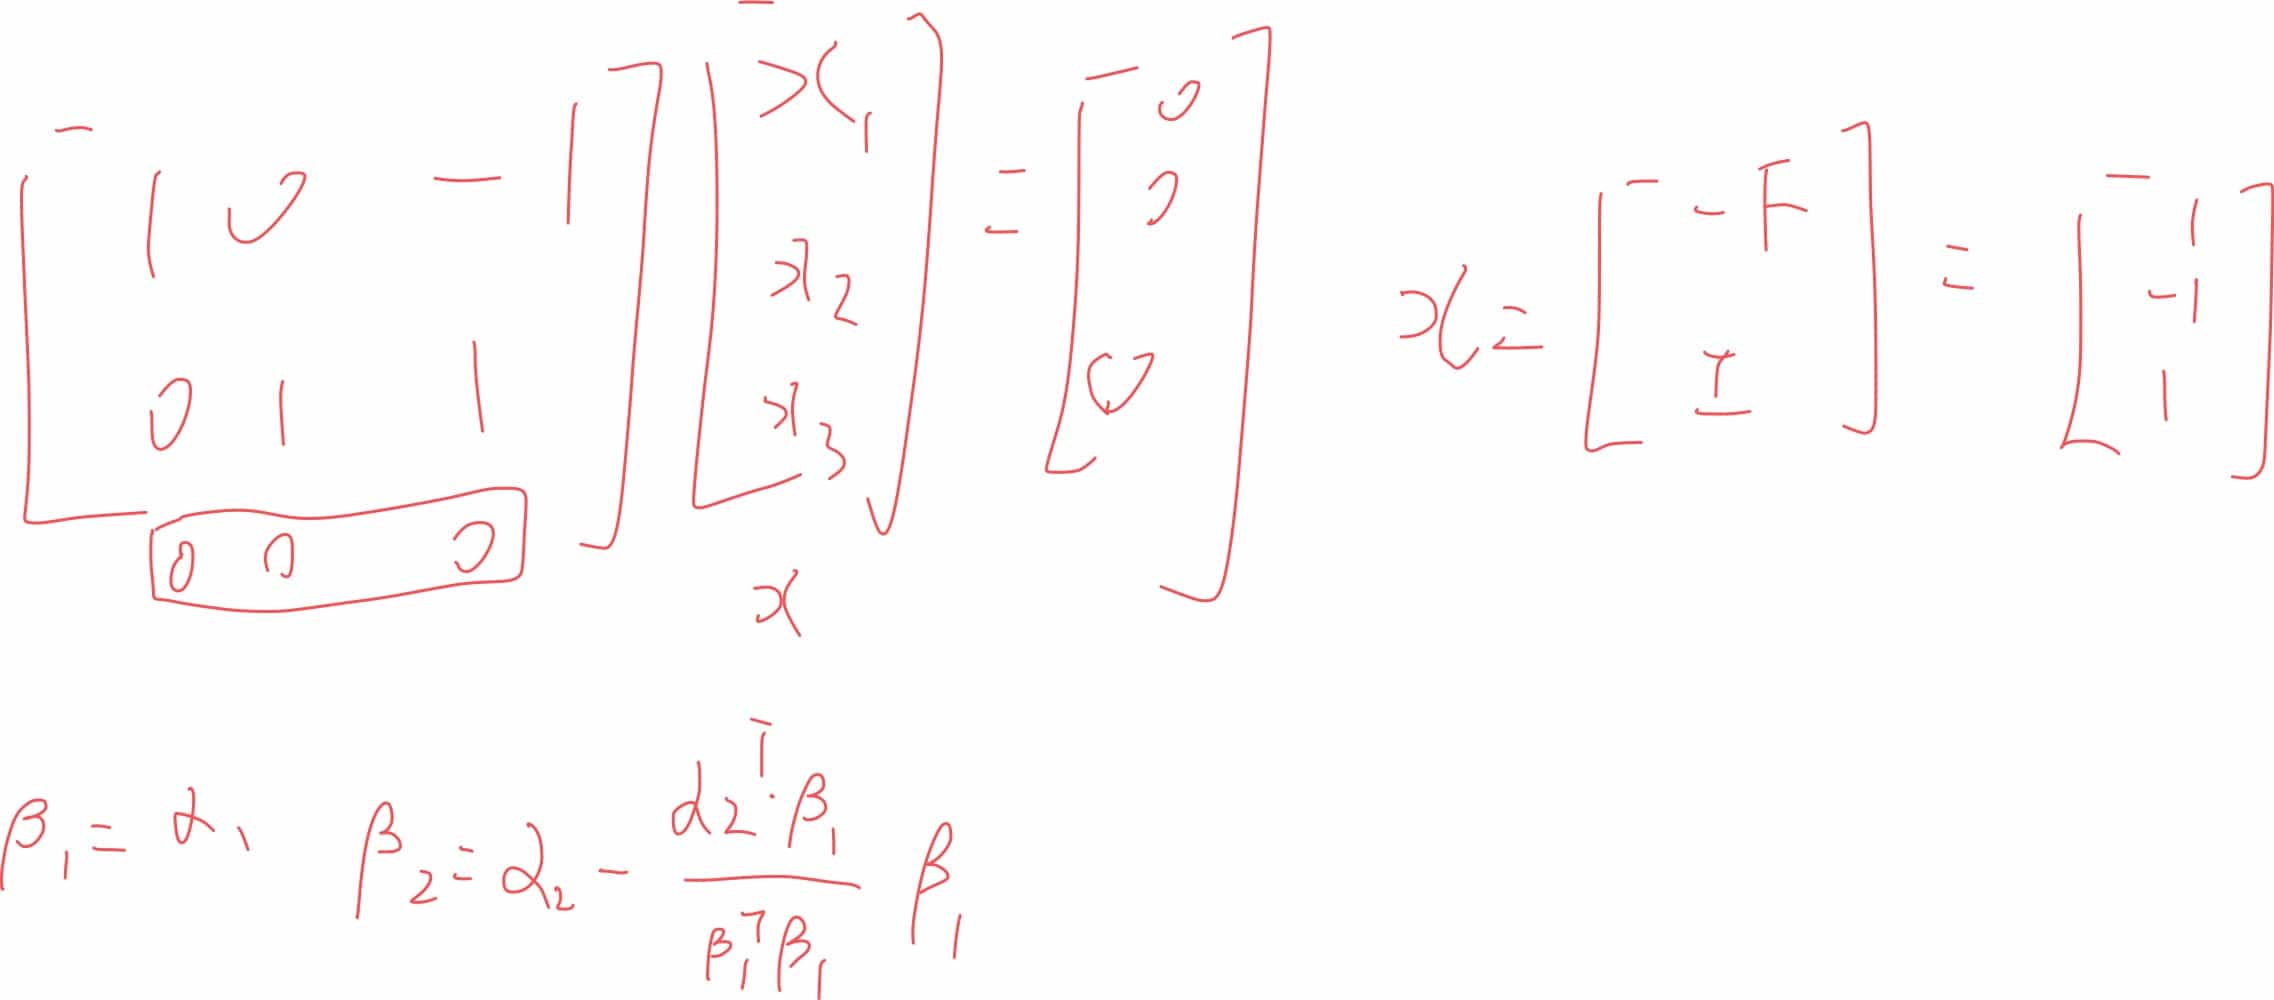 [1 0 -1; 0 1 1; 0 0 0] [x₁; x₂; x₃] = [0; 0; 0]  x = [-F; I] = [1; -1; 1]
x
β₁ = α₁  β₂ = α₂ - (α₂ᵀ·β₁ / β₁ᵀβ₁) β₁